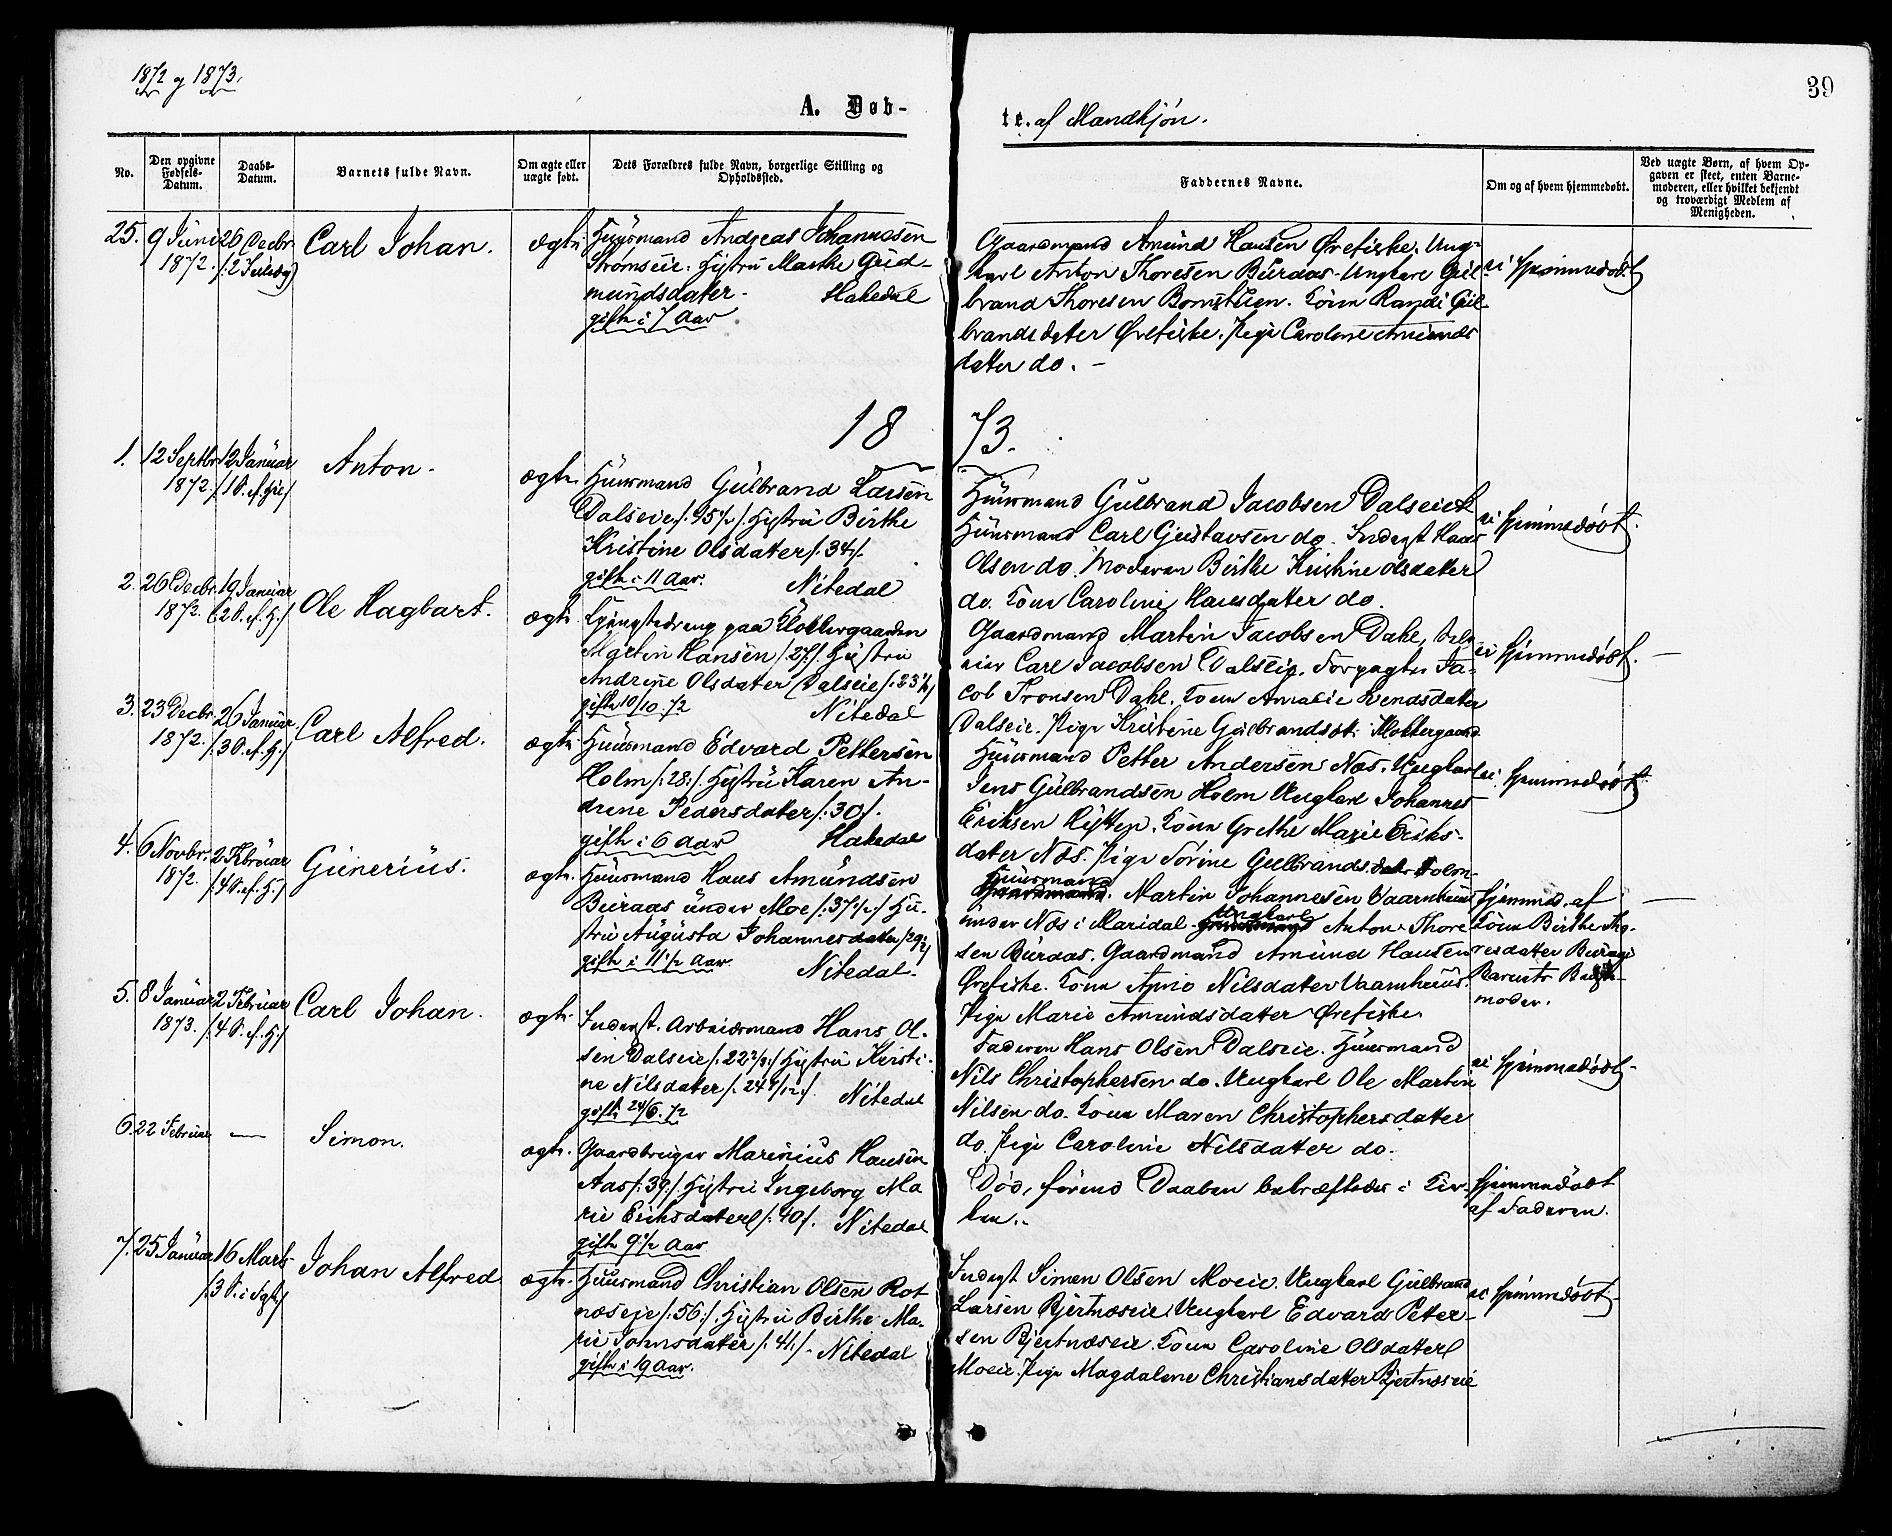 1872 og 1873.
39
A. Døb-
te. af Mandkjøn.
No.
Den opgivne Fødsels-Datum.
Daabs-Datum.
Barnets fulde Navn.
Om ægte eller uægte født.
Dets Forældres fulde Navn, borgerlige Stilling og Opholdssted.
Faddernes Navne.
Om og af hvem hjemmedøbt.
Ved uægte Børn, af hvem Opgaven er skeet, enten Barnemoderen, eller hvilket bekjendt og troværdigt Medlem af Menigheden.
25. 9 Juni 1872. 26 Decbr. /:2 Juledg/
Carl Johan.
ægte
Huusmand Andreas Johannesen
Strømseie. Hustru Marthe Gud-
mundsdater. Hakedal
gifte i 7 Aar
Gaardmand Amund Hansen Ørefiske. Ung-
karl Anton Thoresen Buraas. Ungkarl Gul-
brand Thoresen Bomstuen. Kone Randi Gul-
brandsdater Ørefiske. Pige Caroline Amunds
dater do. –
ei hjemmedøbt
18 73.
1. 12 Septbr. 1872. 12 Januar /1 S. ef. H3K/
Anton.
ægte.
Huusmand Gulbrand Larsen
Dalseie /:45½:/. Hustru Birthe
Kristine Olsdatter /:34:/.
gifte i 11 Aar. Nitedal
Huusmand Gulbrand Jacobsen Dalseiet
Huusmand Carl Gustavsen do. Inderst Hans
Olsen do. Moderen Birthe Kristine Olsdatter
do. Kone Caroline Hansdatter do.
ei hjemmedøbt.
2. 26 Decbr. 1872. 19 Januar /2 S. ef. H:/
Ole Hagbart.
ægte
paa Klokkergaarden
Martin Hansen /:27:/. Hustru
Andrine Olsdatter Dalseie /:23¼/
gifte 10/10.72 Nitedal
Gaardmand Martin Jacobsen Dahl,
Carl Jacobsen Dalseie. Forpagter Ja-
cob Tronsen Dahl. Kone Amalie Svendsdater
Dalseie. Pige Kristine Gulbrandsdt. Klokkergaard
ei hjemmedøbt.
3. 23 Decbr. 1872. 26 Januar /:3 S. ef. H:/
Carl Alfred.
ægte
Huusmand Edvard Pettersen
Holm /:28:/. Hustru Karen An-
drine Pedersdatter /:30/.
gifte i 6 Aar Hakedal
Huusmand Petter Andersen Næs. Ungkarl
Jens Gulbrandsen Holm Ungkarl Johannes
Eriksen Hytten. Kone Grethe Marie Eriks-
dater Næs. Pige Sørine Gulbrandsdatr Holm
ei hjemmedøbt.
4. 6 Novbr. 1872. 2 Februar /:4 S. ef. H:/
Gunerius.
ægte.
Huusmand Hans Amundsen
Buraas under Moe /:37½:/ Hu-
stru Augusta Johannesdater
gifte i 11½ Aar. Nitedal.
Huusmand
Gaardmand. Martin Johannesen Vaarnhuus
under Næs i Maridal. Ungkarl Anton Thore
sen Buraas. Gaardmand Amund Hansen
Ørefiske. Kone Anne Nilsdater Vaarnhuus.
Pige Marie Amundsdatter Ørefiske.
Hjemmed. af
Kone Birthe Tho-
resdatter Buraas
Barnets Bedste-
moder.
5. 8 Januar 1873. 2 Februar /:4 S. ef. H:/
Carl Johan.
ægte.
Inderst. Arbeidsmand Hans Ol-
sen Dalseie /:22⅔:/ Hustru Kirsti-
ne Nilsdater /:24 /12:/. Nitedal
gifte 24/6.72
Faderen Hans Olsen Dalseie. Huusmand
Nils Christophersen do. Ungkarl Ole Martin
Nilsen do. Kone Maren Christophersdatter
do. Pige Caroline Nilsdatter do.
ei hjemmedøbt
6. 22 Februar —
Simon.
ægte.
Gaardbruger Marinius Hansen
Aas /:39:/ Hustru Ingeborg Ma
rie Eriksdatter /:40/. Nitedal
gifte 9½ Aar
Død, førend Daaben bekræftedes i Kir-
ken.
Hjemmedøbt
af Faderen.
7. 25 Januar 16 Marts /3 S. i Fste/
Johan Alfred
ægte.
Huusmand Christian Olsen Rot
næseje /:56:/. Hustru Birthe Ma-
rie Johnsdatter /:41:/- Nitedal
gifte i 19 Aar.
Inderst Simen Olsen Moeie. Ungkarl Gulbrand
Larsen Bjertnæseie. Ungkarl Edvard Petter-
sen Bjertnæseie. Kone Caroline Olsdatter
Moeie. Pige Magdalene Christiansdatter Bjertnæseie
ei hjemmedøbt